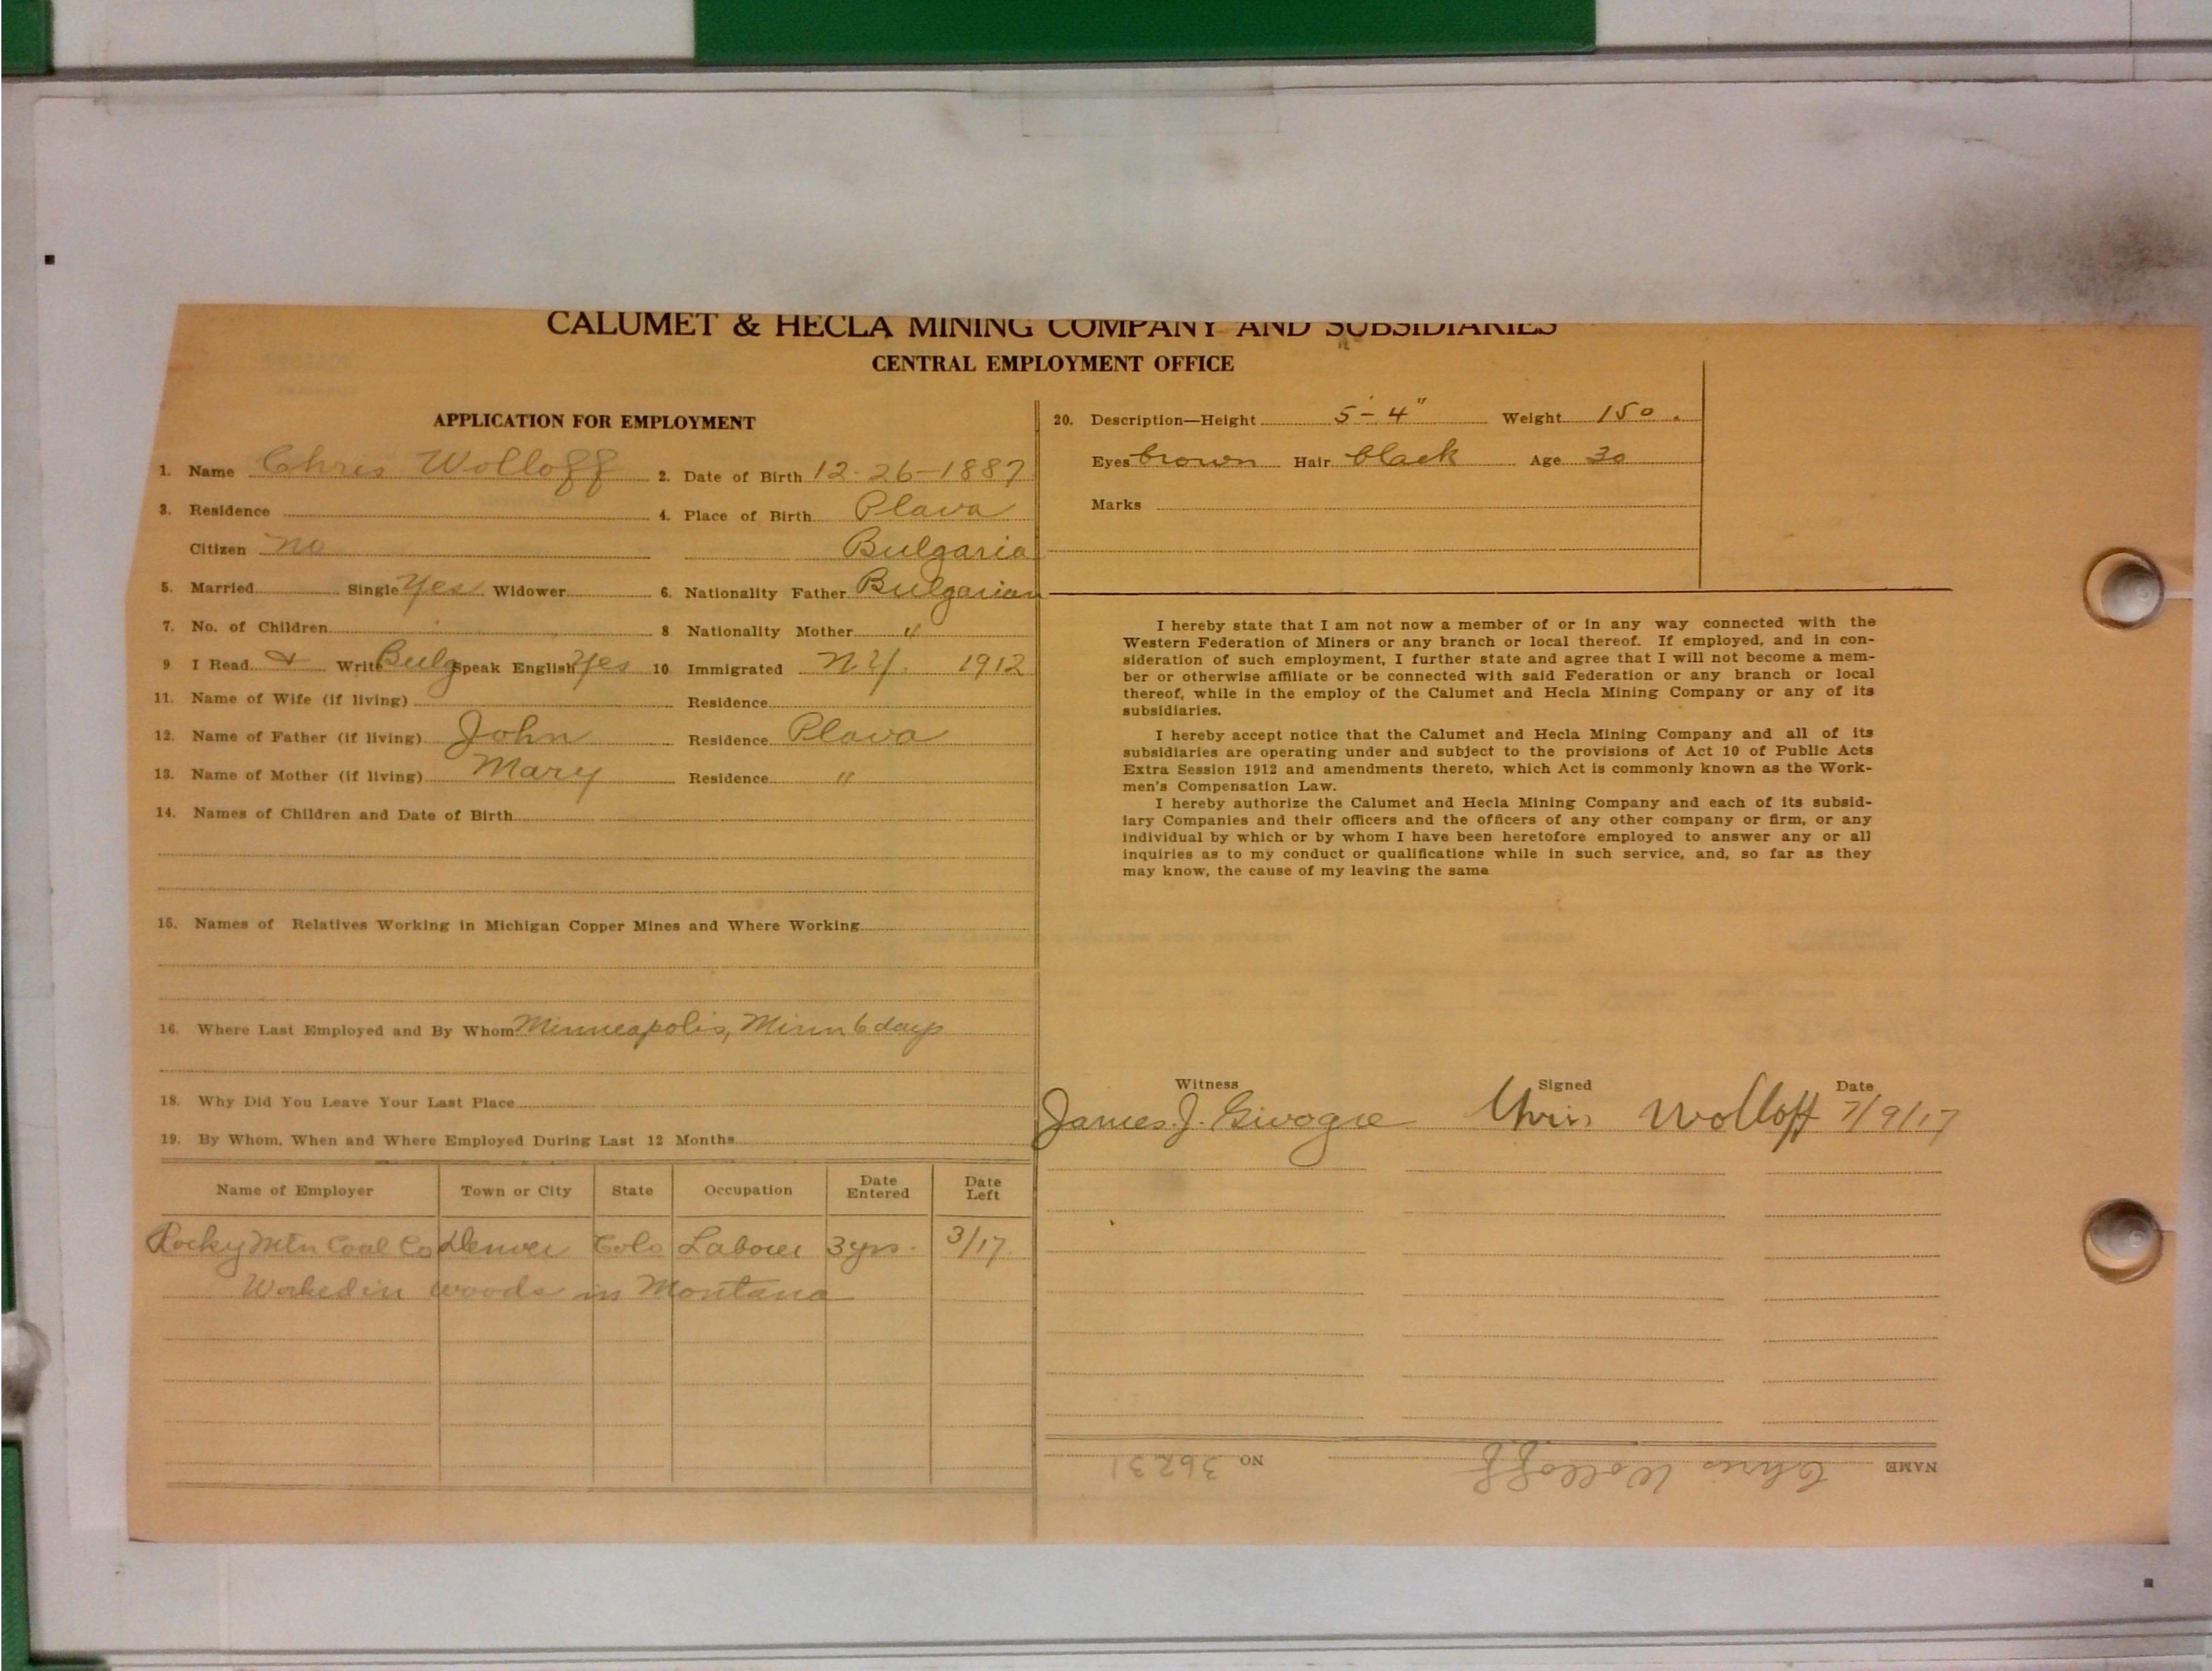 CALUMET & HECLA MINING COMPANY AND SUBSIDIARIES
CENTRAL EMPLOYMENT OFFICE
APPLICATION FOR EMPLOYMENT
1. Name Chris Wolloff 2. Date of Birth 12-26-1887
3. Residence 4. Place of Birth Plava
Citizen no Bulgaria
5. Married Single Yes Widower 6. Nationality Father Bulgarian
7. No. of Children 8 Nationality Mother "
9 I Read & Write Bulg Speak English Yes 10 Immigrated N.Y. 1912
11. Name of Wife (if living) Residence
12. Name of Father (if living) John Residence Plava
13. Name of Mother (if living) Mary Residence "
14. Names of Children and Date of Birth
15. Names of Relatives Working in Michigan Copper Mines and Where Working
16. Where Last Employed and By Whom Minneapolis, Minn 6 days
18. Why Did You Leave Your Last Place
19. By Whom, When and Where Employed During Last 12 Months
Name of Employer Town or City State Occupation Date Entered Date Left
Rocky Mtn Coal Co Denver Colo Laborer 3 yrs. 3/17
Worked in woods in Montana
20. Description—Height 5'-4" Weight 150.
Eyes brown Hair black Age 30
Marks
I hereby state that I am not now a member of or in any way connected with the
Western Federation of Miners or any branch or local thereof. If employed, and in con-
sideration of such employment, I further state and agree that I will not become a mem-
ber or otherwise affiliate or be connected with said Federation or any branch or local
thereof, while in the employ of the Calumet and Hecla Mining Company or any of its
subsidiaries.
I hereby accept notice that the Calumet and Hecla Mining Company and all of its
subsidiaries are operating under and subject to the provisions of Act 10 of Public Acts
Extra Session 1912 and amendments thereto, which Act is commonly known as the Work-
men's Compensation Law.
I hereby authorize the Calumet and Hecla Mining Company and each of its subsid-
iary Companies and their officers and the officers of any other company or firm, or any
individual by which or by whom I have been heretofore employed to answer any or all
inquiries as to my conduct or qualifications while in such service, and, so far as they
may know, the cause of my leaving the same
Witness Signed Date
James J. Chris Wolloff 7/9/17
NAME Chris Wolloff NO 36231